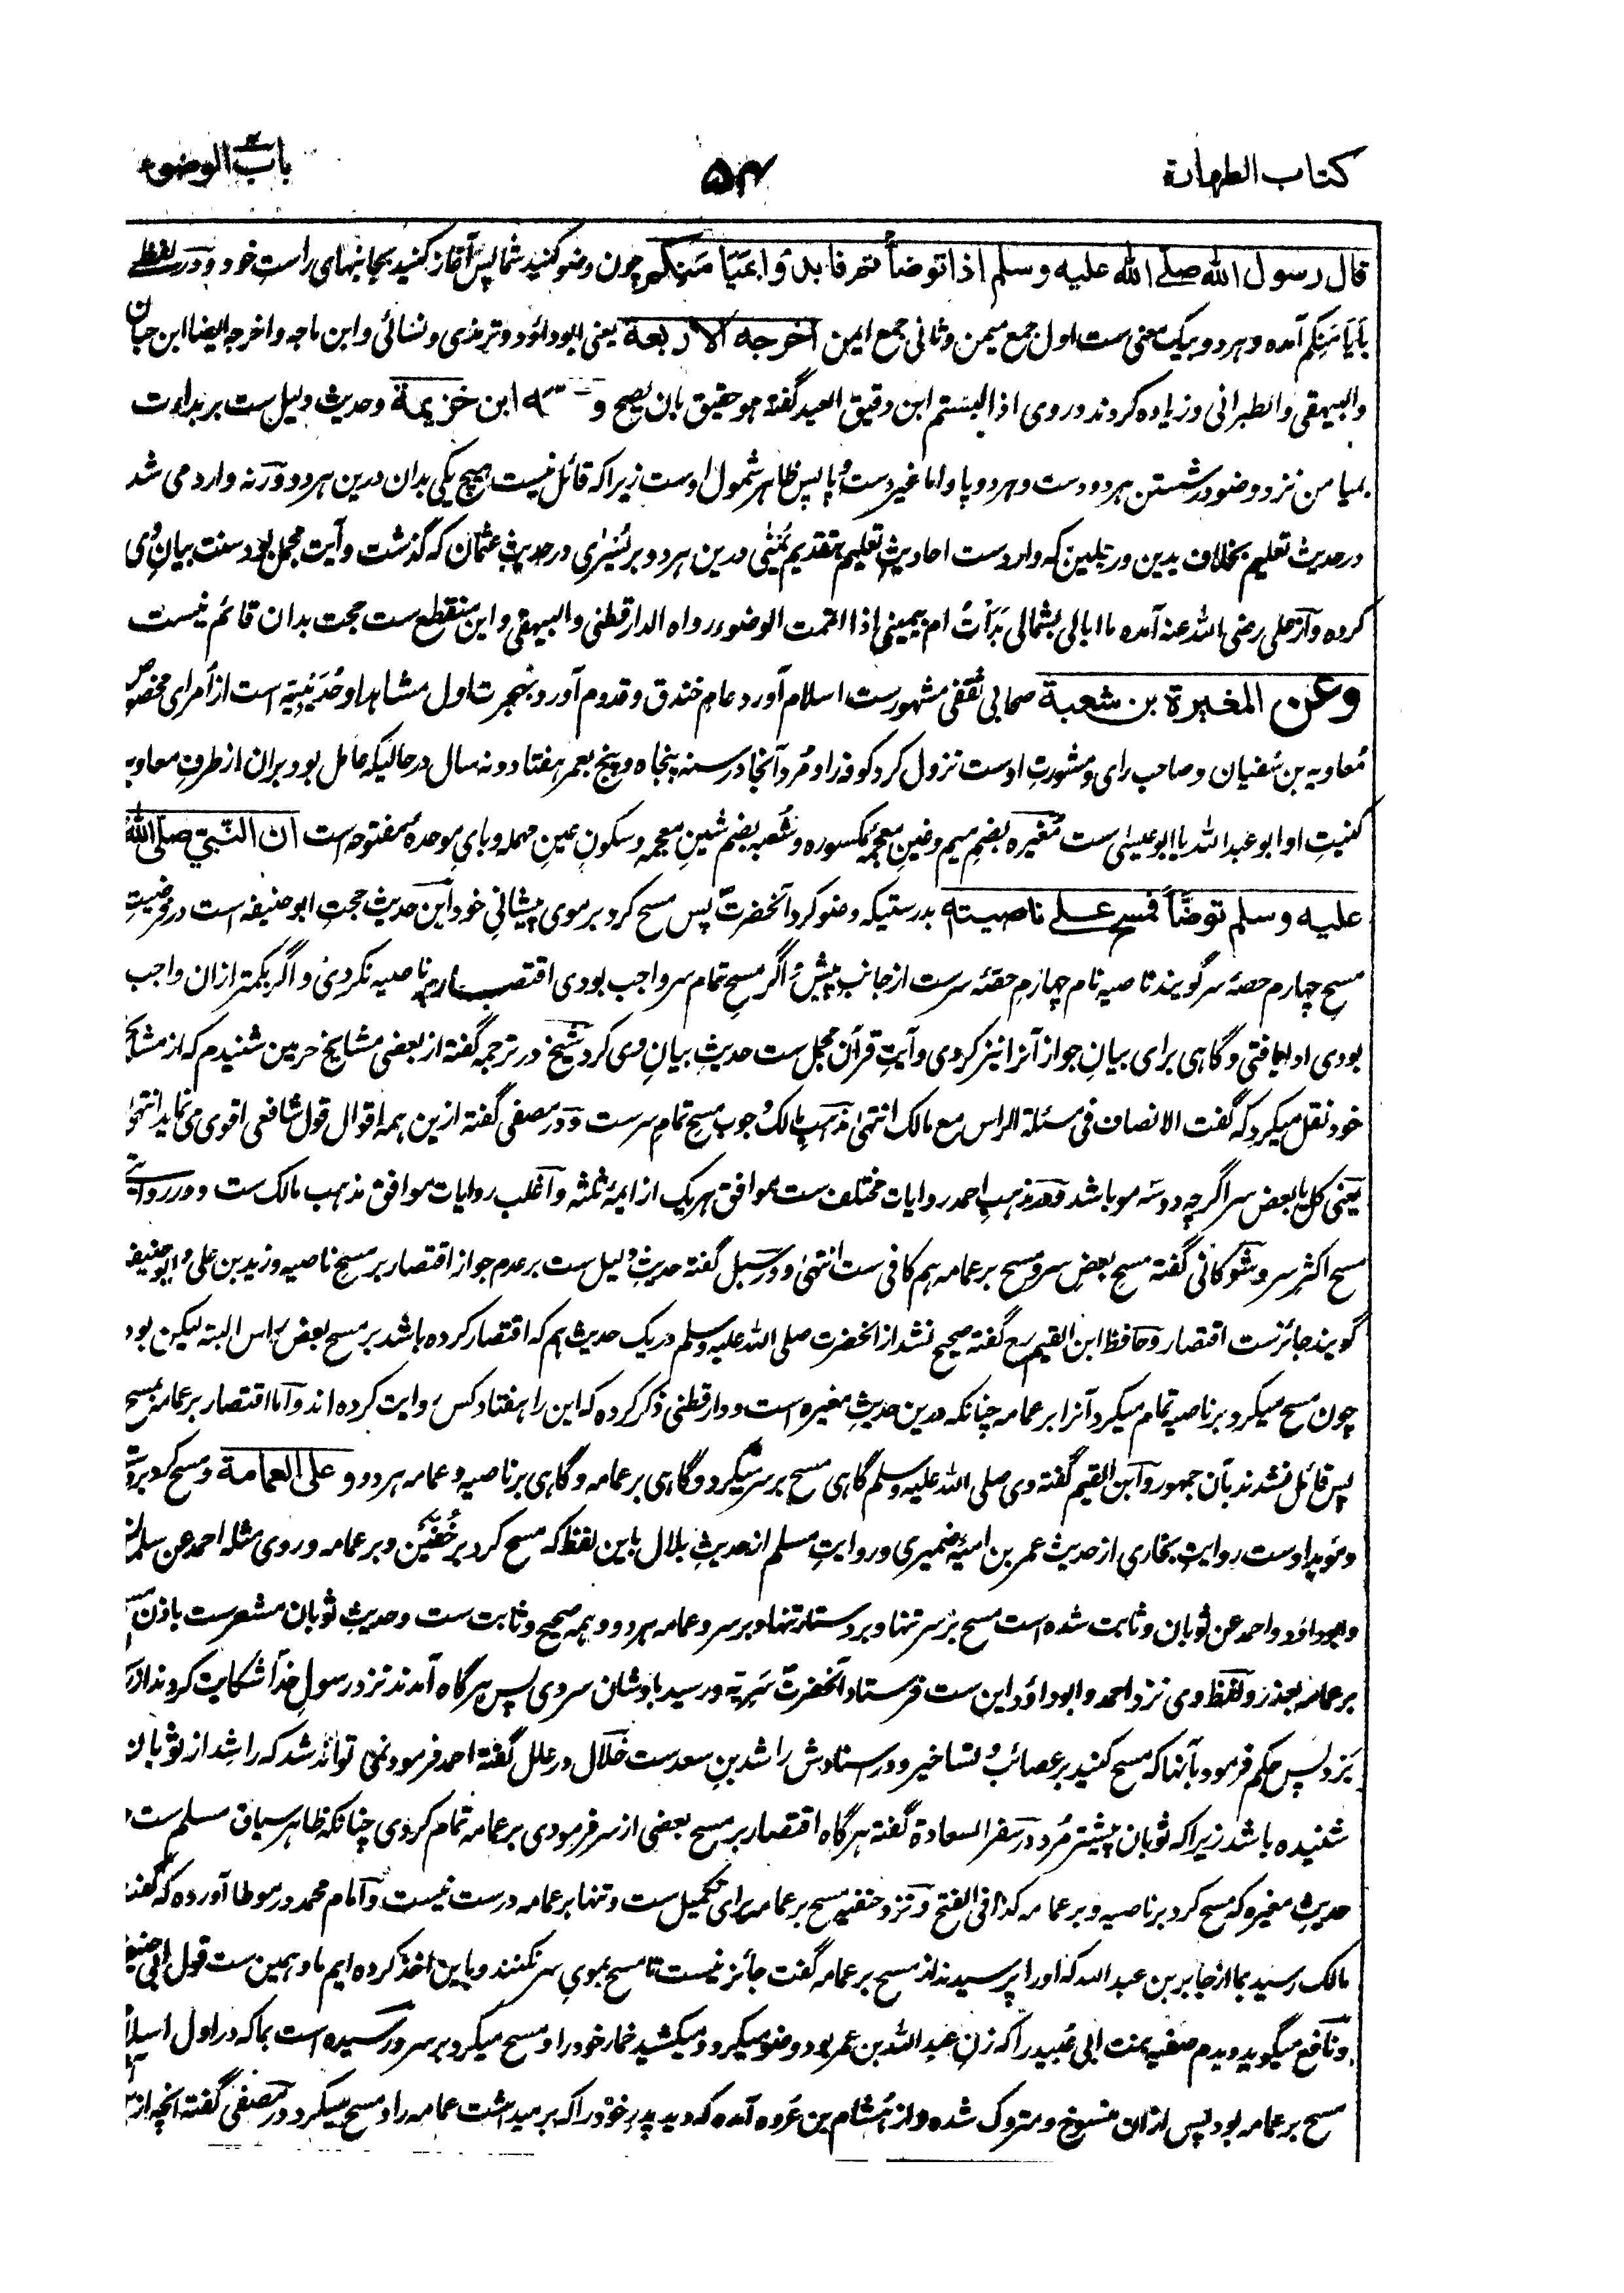 کتاب الطهارة ۵۴ باب الوضوء
قال رسول الله صلے الله عليه وسلم اذا توضأتم فابدؤا بميامنكم چون وضو کنید شما پس آغاز کنید بجانبهای راست خود و در لفظے
بأیامنکم آمده و هر دو بیک معنی ست اول جمع میمن و ثانی جمع ایمن اخرجه الاربعة یعنی ابو داؤد و ترمذی و نسائی و ابن ماجه و اخرجه ایضا ابن حبان
والبیهقی والطبرانی و زیاده کردند در وی اذا لبستم ابن دقیق العید گفته هو حقیق بان یصح و ابن خزيمة و حدیث دلیل ست بر بداءت
بمیامن نزد وضو در شستن هر دو دست و هر دو پا و اما غیر دست و پا پس ظاهر شمول اوست زیراکه قائل نیست هیچ یکی بدان درین هر دو ورنه وارد می شد
در حدیث تعلیم بخلاف یدین و رجلین که وارد ست احادیث تعلیم بتقدیم یمنی درین هر دو بر یسری در حدیث عثمان که گذشت و آیت مجمل بود سنت بیان وی
کرده و از علی رضی الله عنه آمده ما ابالی بشمالی بدأت ام بیمینی اذا اتممت الوضوء رواه الدارقطنی والبیهقی و این منقطع ست حجت بدان قائم نیست
وعن المغيرة بن شعبة صحابی ثقفی مشهور ست اسلام آورد عام خندق و قدوم آورد بهجرت اول مشاهد او حدیبیه است از امرای مخصوص
معاویه بن سفیان و صاحب رای و مشورت اوست نزول کرد کوفه را و مرد آنجا در سنه پنجاه و پنج بعمر هفتاد و نه سال در حالیکه عامل بود بران از طرف معاویه
کنیت او ابو عبد الله یا ابو عیسیٰ ست مغیره بضم میم و غین معجمه مکسوره و شعبه بضم شین معجمه و سکون عین مهمله و بای موحده مفتوحه است ان النبي صلى الله
عليه وسلم توضأ فمسح علے ناصيته بدرستیکه وضو کرد آنحضرت پس مسح کرد بر موی پیشانی خود این حدیث حجت ابو حنیفه است در فرضیت
مسح چهارم حصۀ سر گویند ناصیه نام چهارم حصۀ سرست از جانب پیش و اگر مسح تمام سر واجب بودی اقتصار بر ناصیه نکردی و اگر بکمتر ازان واجب
بودی ادا یافتی و گاهی برای بیان جواز آنرا نیز کردی و آیت قرآن مجمل ست حدیث بیان وی کرد شیخ در ترجمه گفته از بعضی مشایخ حرمین شنیدم که از مشایخ
خود نقل میکرد که گفت الانصاف فی مسئلة الراس مع مالک انتهیٰ مذهب مالک وجوب مسح تمام سرست و در مصفی گفته ازین همه اقوال قول شافعی اقوی می نماید انتهی
یعنی کل یا بعض سر اگرچه دو سه مو باشد و در مذهب احمد روایات مختلف ست موافق هر یک از ایمۀ ثلثه و اغلب روایات موافق مذهب مالک ست و در روایتے
مسح اکثر سر و شوکانی گفته مسح بعض سر و مسح بر عمامه هم کافی ست انتهیٰ و در سبل گفته حدیث دلیل ست بر عدم جواز اقتصار بر مسح ناصیه و زید بن علی و ابو حنیفه
گویند جائزست اقتصار و حافظ ابن القیم رح گفته صحیح نشد از آنحضرت صلی الله علیه وسلم در یک حدیث هم که اقتصار کرده باشد بر مسح بعض راس البته لیکن بود
چون مسح میکرد بر ناصیه تمام میکرد آنرا بر عمامه چنانکه درین حدیث مغیره است و دارقطنی ذکر کرده که این را هفتاد کس روایت کرده اند و اما اقتصار بر عمامه بمسح
پس قائل نشدند بآن جمهور و ابن القیم گفته وی صلی الله علیه وسلم گاهی مسح بر سر میکرد و گاهی بر عمامه و گاهی بر ناصیه و عمامه هر دو و على العمامة و مسح کرد بر
و مؤید اوست روایت بخاری از حدیث عمر بن امیه ضمیری و روایت مسلم از حدیث بلال باین لفظ که مسح کرد بر خفین و بر عمامه و روی مثله احمد عن سلمان
و ابو داؤد و احمد عن ثوبان و ثابت شده است مسح بر سر تنها و بر دستار تنها و بر سر و عمامه هر دو و همه صحیح و ثابت ست و حدیث ثوبان مشعرست باذن
بر عمامه بعذر و لفظ وی نزد احمد و ابو داؤد این ست فرستاد آنحضرت سریه و رسید بادشان سردی پس هرگاه آمدند نزد رسول خدا شکایت کردند از
برد پس حکم فرمود بآنها که مسح کنید بر عصائب و تساخیر و در سنادش راشد بن سعدست خلال در علل گفته احمد فرمود نمی تواند شد که راشد از ثوبان
شنیده باشد زیراکه ثوبان پیشتر مرد در سفر السعادة گفته هرگاه اقتصار بر مسح بعضی از سر فرمودی بر عمامه تمام کردی چنانکه ظاهر سیاق مسلم ست
حدیث مغیره که مسح کرد بر ناصیه و بر عمامه کذا فی الفتح و نزد حنفیه مسح بر عمامه برای تکمیل ست و تنها بر عمامه درست نیست و امام محمد در موطا آورده که گفت
مالک رسید بما از جابر بن عبد الله که او را پرسیدند از مسح بر عمامه گفت جائز نیست تا مسح بموی سر نکنند و باین اخذ کرده ایم ما و همین ست قول ابی حنیفه
و نافع میگوید دیدم صفیه بنت ابی عبید را که زن عبد الله بن عمر بود وضو میکرد و میکشید خمار خود را و مسح میکرد بر سر و رسیده است بما که در اول اسلام
مسح بر عمامه بود پس ازان منسوخ و متروک شده و از هشام بن عروه آمده که دید پدر خود را که بر میداشت عمامه را و مسح میکرد و در مصفی گفته آنچه از